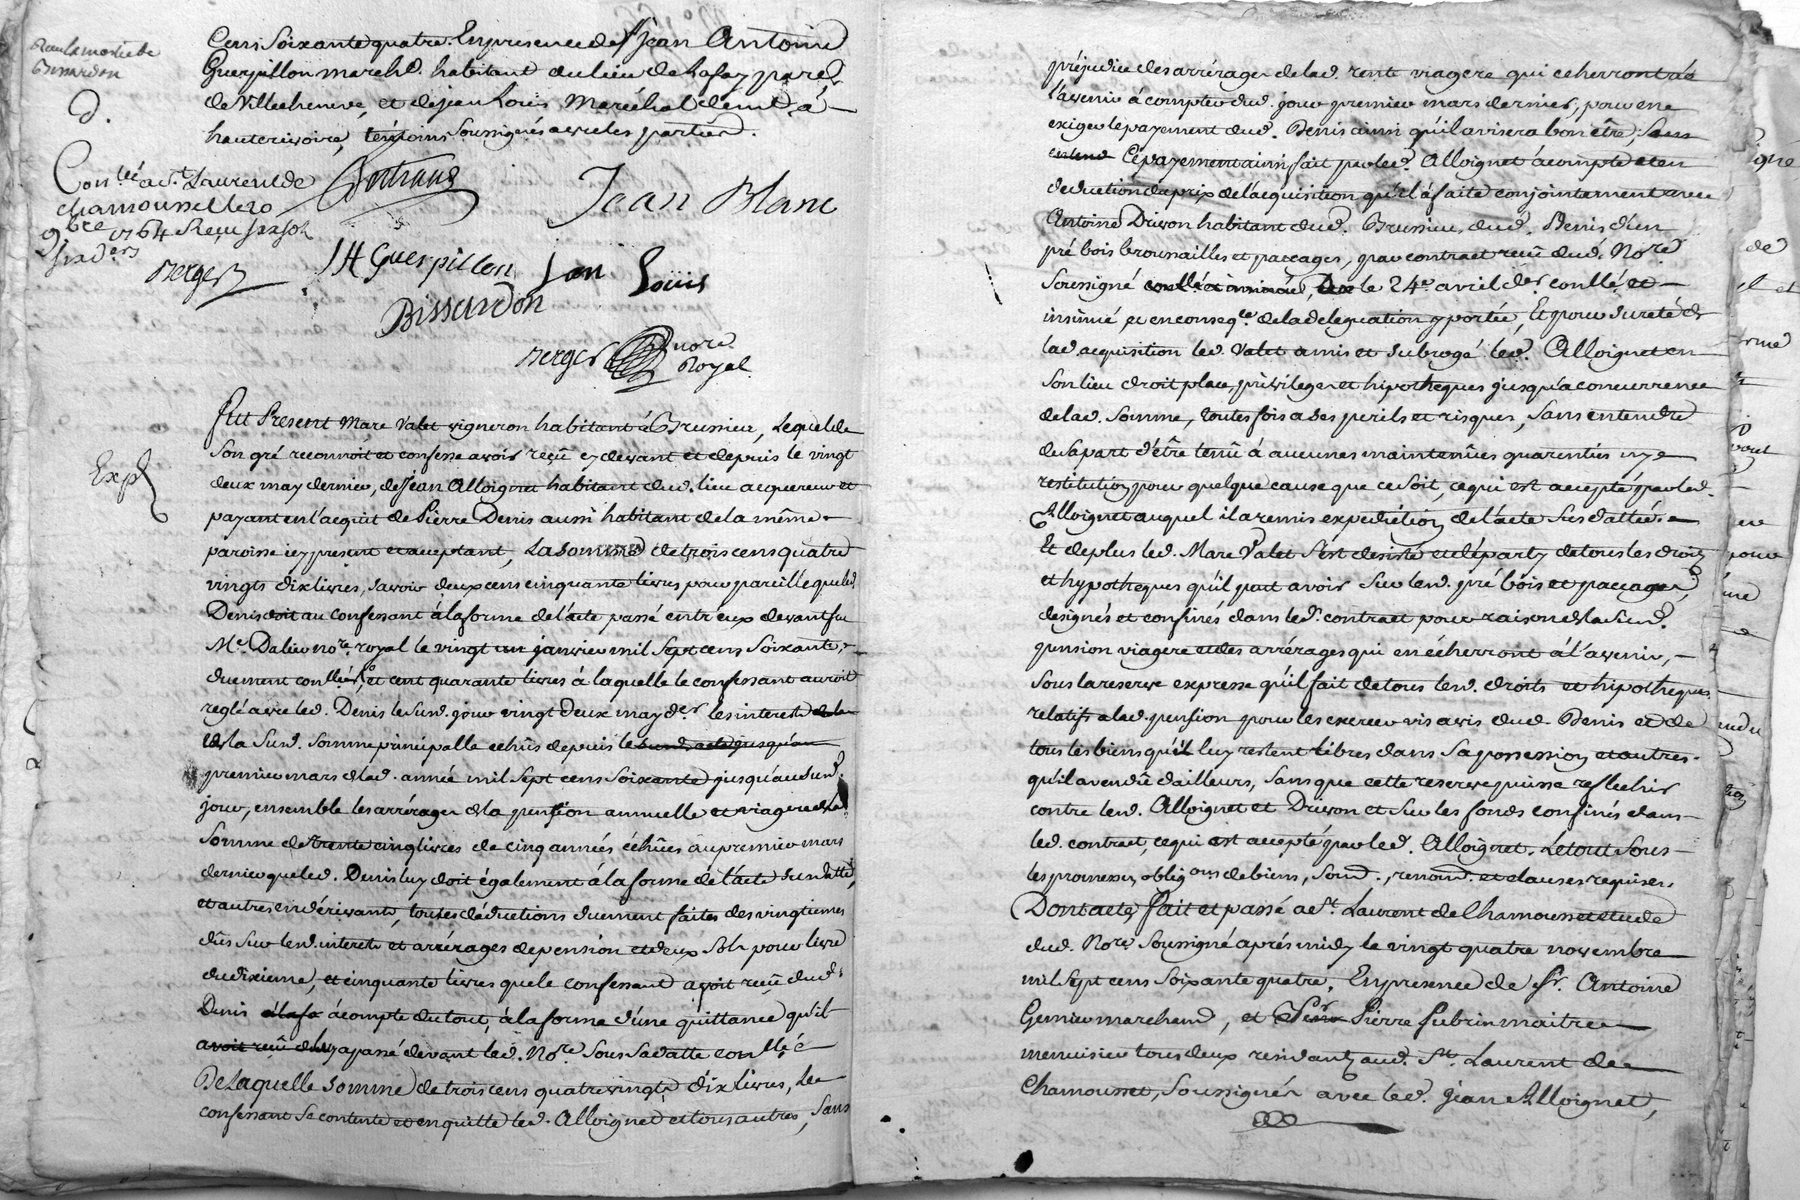 Cens soixante quatre. En presence de Sr. Jean Antoine
Guerpillon march.d habitant du lieu de Lafay parr.
de Villecheneve, et de Jean Loüis Maréchal demt. à
hauterivoire, témoins soussignés avec les parties.
d.
Con.lée a St. Laurent de
chamousset le 20
9bre 1764 Reçu six sols
six d.ers
Berger
Bertrand
Jean Blanc
JH Guerpillon
Jan Loüis
Bissardon
Berger no.re Royal
Exp.
Fut Present Marc Valet vigneron habitant à Brussieu, Lequel de
son gré reconnoit et confesse avoir reçû cy devant et depuis le vingt
deux may dernier, de Jean Alloignet habitant dud. lieu acquereur et
payant en l'acquit de Pierre Denis aussi habitant de la même
paroisse icy present et acceptant, La somme de trois cens quatre
vingts dix livres, savoir deux cens cinquante livres pour pareille que led.
Denis doit au confessant à la forme de l'acte passé entr'eux devant fu
Me. Dalier no.re royal le vingt un janvier mil sept cens soixante,
duement con.llé, et cent quarante livres à laquelle le confessant auroit
reglé avec led. Denis le sud. jour vingt deux may d.er les interets de la
de la sud. somme principalle echûs depuis le sud. acte jusqu'au
premier mars de lad. année mil sept cens soixante jusqu'au sud.
jour, ensemble les arrérages de la pension annuelle et viagere de la
somme de trente cinq livres de cinq années échûes au premier mars
dernier que led. Denis luy doit également à la forme de l'acte susdatté,
et autres en dérivants, toutes déductions duement faites des vingtiemes
dûs sur lesd. interets et arrérages de pension et deux sols pour livre
du dixieme, et cinquante livres que le confessant avoit reçu dud.
Denis à la fo à compte du tout, à la forme d'une quittance qu'il
avoit reçu de luy a passé devant led. No.re sous sa datte con.llée
De Laquelle somme de trois cens quatre vingts dix livres, Le
confessant se contente et en quitte led. Alloignet et tous autres, sans
préjudice des arrérages de lad. rente viagere qui echerront à
l'avenir à compter dud. jour premier mars dernier, pour en
exiger le payement dud. Denis ainsi qu'il avisera bon être, sans
Ce payement ainsi fait par led. Alloignet à compte et en
déduction du prix de l'acquisition qu'il a faite conjointement avec
Antoine Drivon habitant dud. Brussieu, dud. Denis d'un
pré bois brousailles et paccages, par contract reçu dud. No.re
soussigné con.llé et insinué, le 24e. avril d.er con.llé et
insinué et en conseq.ce de la delegation y portée, Et pour sureté de
lad acquisition led. Valet a mis et subrogé led. Alloignet en
son lieu droit place, privileges et hipotheques jusqu'à concurrence
de lad. somme, toutes fois a ses perils et risques, sans entendre
de sa part d'être tenû à aucunes maintenûes guarenties ny
restitution pour quelque cause que ce soit, ce qui est accepté par led.
Alloignet auquel il a remis expedition de l'acte susdatté.
Et de plus led. Marc Valet s'est desisté et départy de tous les droits
et hypotheques qu'il peut avoir sur lesd. pré bois et paccages,
designés et confinés dans led. contract pour raison de la susd.
pension viagere et des arrérages qui en écherront à l'avenir,
sous la reserve expresse qu'il fait de tous lesd. droits et hipotheques
relatifs a lad. pension pour les exercer vis a vis dud. Denis et de
tous les biens qu'il luy restent libres dans sa possession et autres
qu'il a vendû d'ailleurs, sans que cette reserve puisse reflechir
contre lesd. Alloignet et Drivon et sur les fonds confinés dans
led. contract, ce qui est accepté par led. Alloignet. Le tout sous
les promesses oblig.ons de biens, soum., renon. et clauses requises.
Dont acte, fait et passé a St. Laurent de Chamousset etude
dud. No.re soussigné après midy le vingt quatre novembre
mil sept cens soixante quatre. En presence de Sr. Antoine
Grenier marchand, et Pierre Subrin maitre
menuisier tous deux residants aud. St. Laurent de
Chamousset, soussignés avec led. Jean Alloignet,